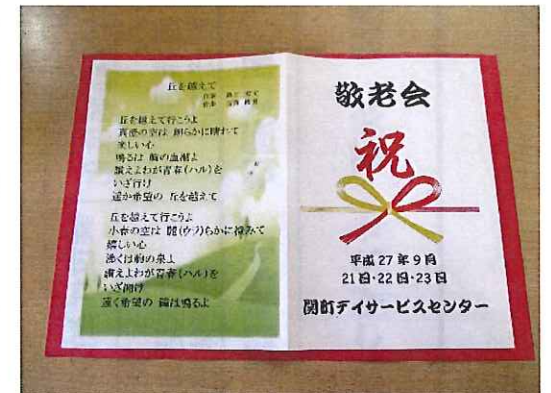 丘を越えて
丘を越えて行こうよ
真澄の空は 朗らかに晴れて
楽しい心
鳴るは 胸の血潮よ
讃えよわが青春(ハル)を
いざ行け
遥か希望の 丘を越えて
丘を越えて行こうよ
小春の空は 麗(ウラ)らかに澄みて
嬉しい心
湧くは胸の泉よ
讃えよわが青春(ハル)を
いざ聞け
遠く希望の 鐘は鳴るよ
敬老会
祝
平成27年9月
21日・22日・23日
関町デイサービスセンター